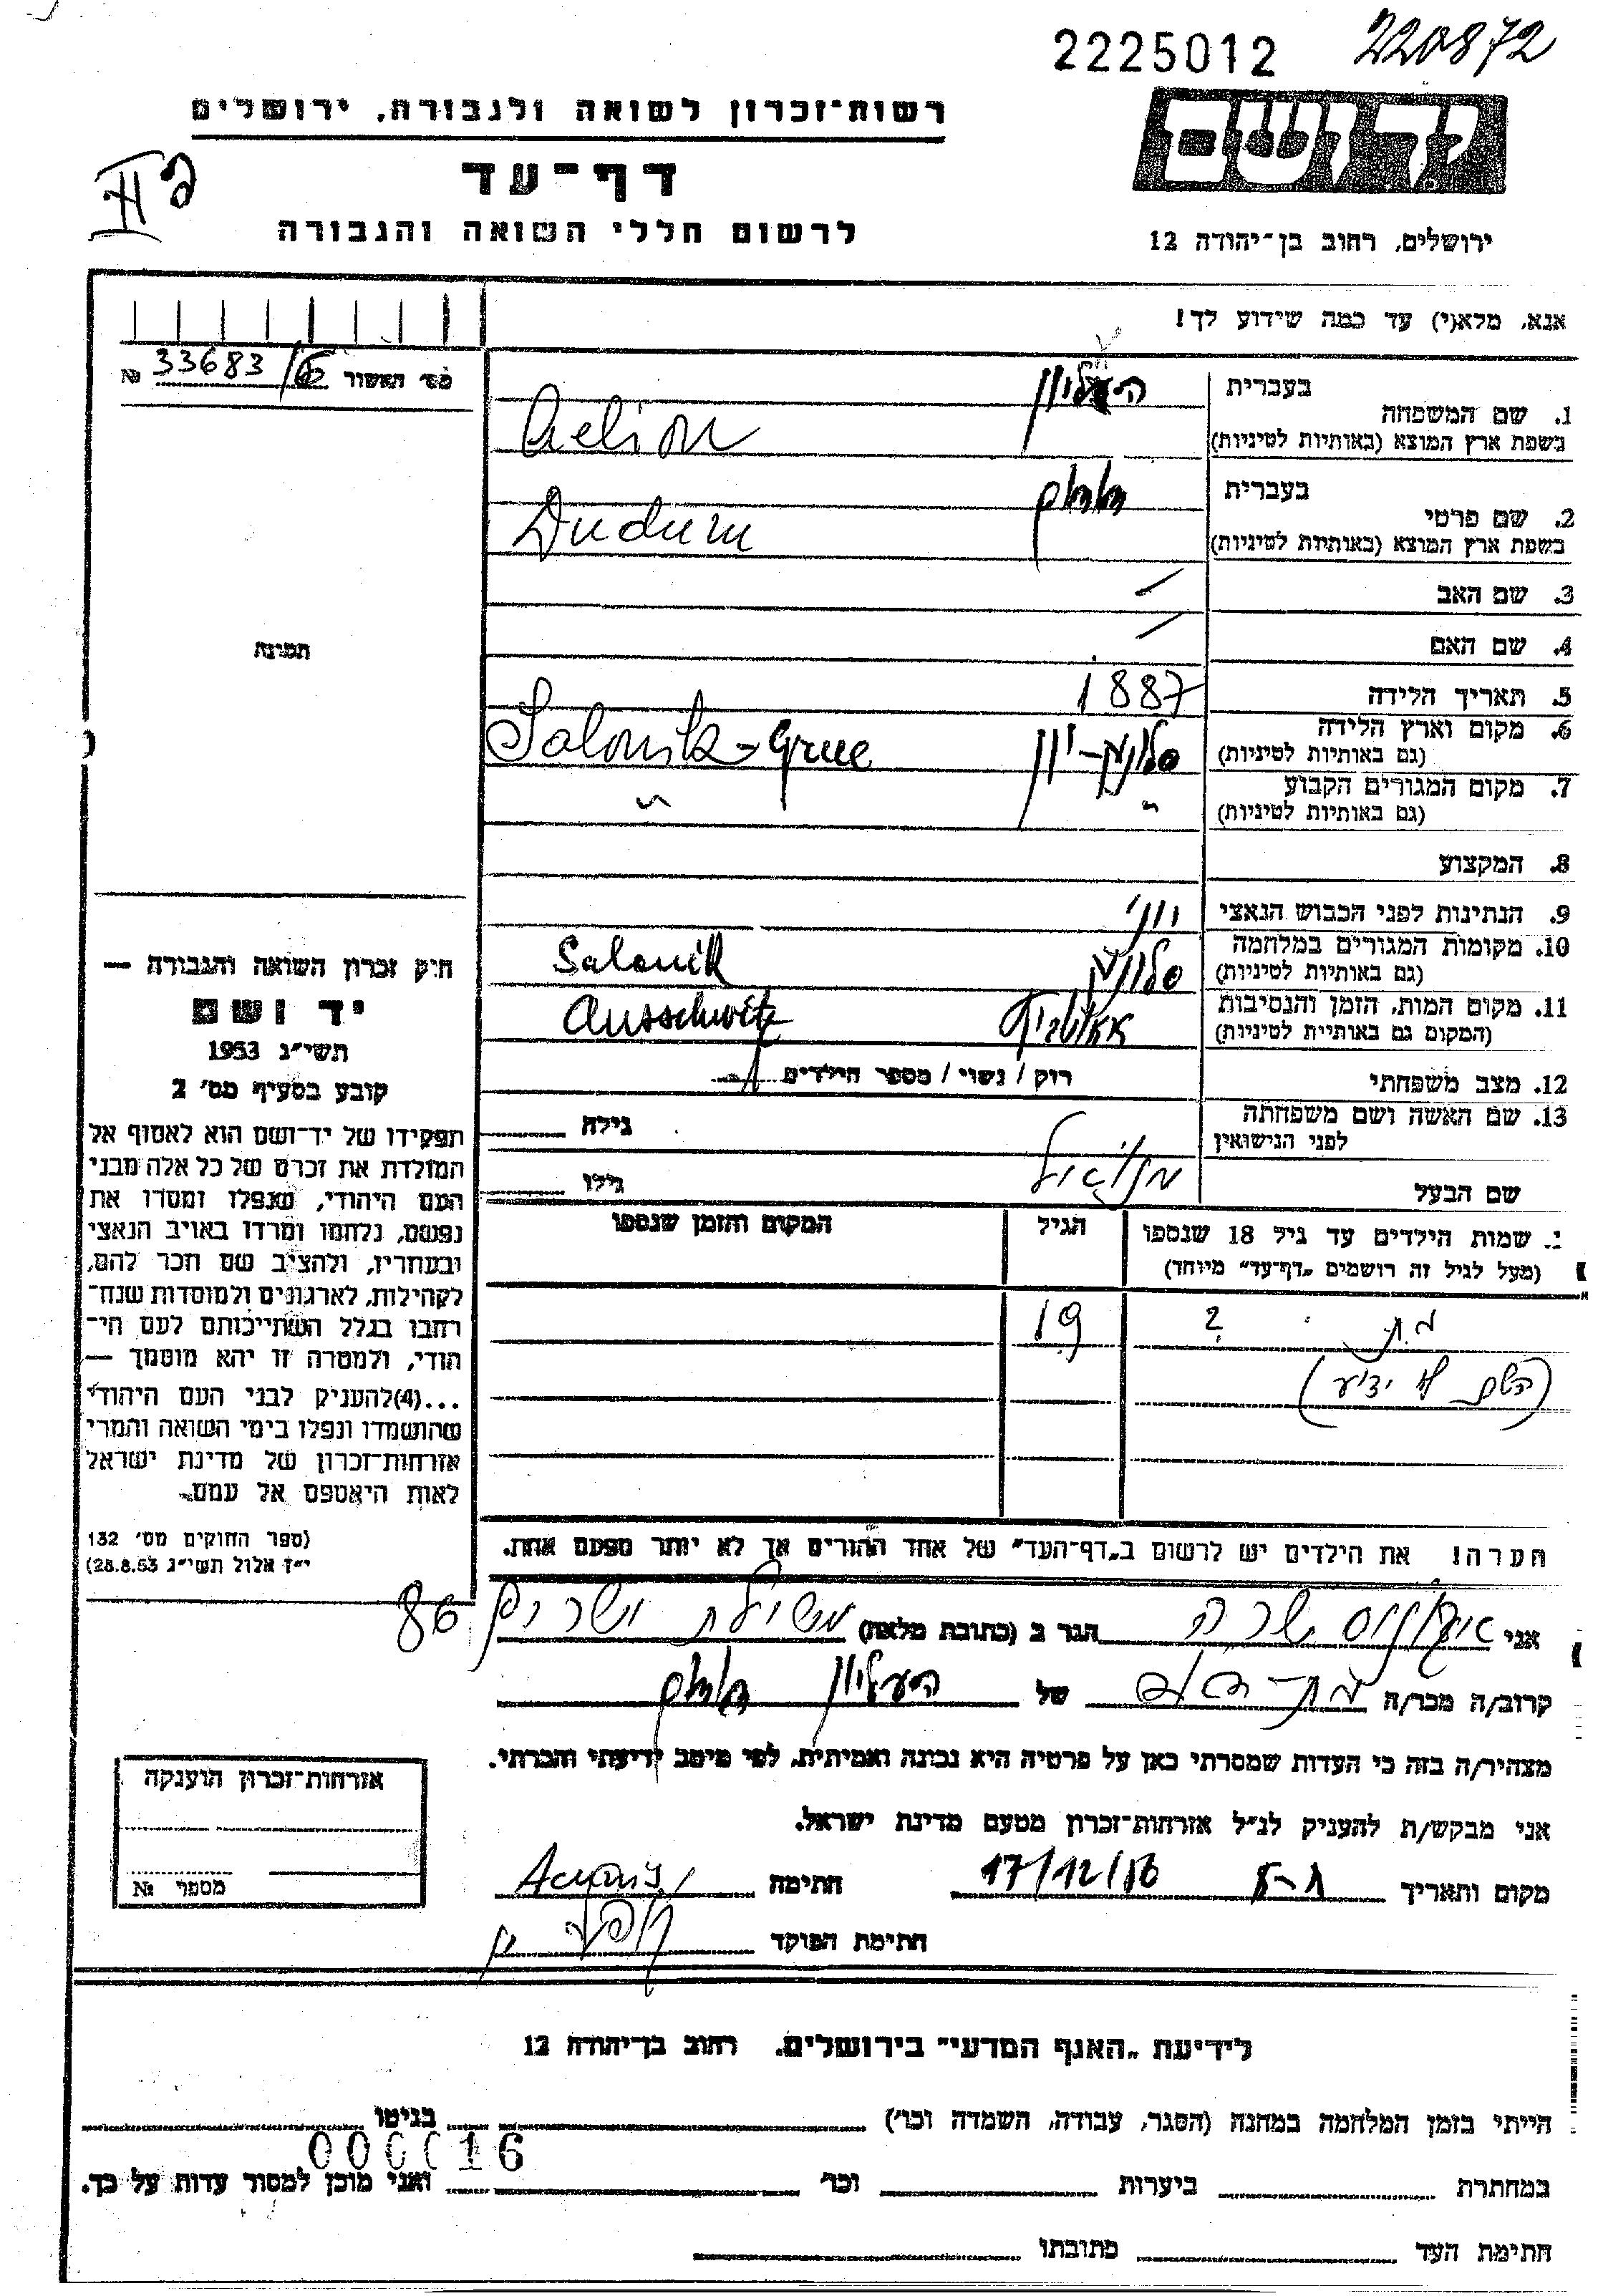 2225012 220872
רשות־זכרון לשואה ולגבורה, ירושלים
יד ושם
דף־עד
II
לרשום חללי השואה והגבורה
ירושלים, רחוב בן־יהודה 12
אנא, מלא(י) עד כמה שידוע לך!
מס' האשור № 33683/
1. שם המשפחה
בעברית
בשפת ארץ המוצא (באותיות לטיניות) Aelion
2. שם פרטי
בעברית דודון
בשפת ארץ המוצא (באותיות לטיניות) Dudun
3. שם האב /
4. שם האם /
תמונה
5. תאריך הלידה 1887
6. מקום וארץ הלידה סלוניק-יון Salonik-Grece
(גם באותיות לטיניות)
7. מקום המגורים הקבוע " "
(גם באותיות לטיניות)
8. המקצוע
9. הנתינות לפני הכבוש הנאצי יוני
10. מקומות המגורים במלחמה סלוניק Salonik
(גם באותיות לטיניות)
11. מקום המות, הזמן והנסיבות אאושויץ Ausschwitz
(המקום גם באותיות לטיניות)
12. מצב משפחתי רוק / נשוי / מספר הילדים 1
13. שם האשה ושם משפחתה גילה
לפני הנישואין
שם הבעל גילו
שמות הילדים עד גיל 18 שנספו הגיל המקום והזמן שנספו
(מעל לגיל זה רושמים „דף־עד" מיוחד)
בת ? 19
(השם לא ידוע)
חוק זכרון השואה והגבורה —
יד ושם
תשי"ג 1953
קובע בסעיף מס' 2
תפקידו של יד־ושם הוא לאסוף אל
המולדת את זכרם של כל אלה מבני
העם היהודי, שנפלו ומסרו את
נפשם, נלחמו ומרדו באויב הנאצי
ובעוזריו, ולהציב שם וזכר להם,
לקהילות, לארגונים ולמוסדות שנח־
רבו בגלל השתייכותם לעם הי־
הודי, ולמטרה זו יהא מוסמך —
...(4)להעניק לבני העם היהודי
שהושמדו ונפלו בימי השואה והמרי
אזרחות־זכרון של מדינת ישראל
לאות היאספם אל עמם.
(ספר החוקים מס' 132
י"ז אלול תשי"ג 28.8.53)
הערה! את הילדים יש לרשום ב„דף־העד" של אחד ההורים אך לא יותר מפעם אחת.
אני שרה הגר ב (כתובת מלאה) מסילת ישרים 86
קרוב/ה מכר/ה של דודון
מצהיר/ה בזה כי העדות שמסרתי כאן על פרטיה היא נכונה ואמיתית, לפי מיטב ידיעתי והכרתי.
אני מבקש/ת להעניק לנ"ל אזרחות־זכרון מטעם מדינת ישראל.
מקום ותאריך 17/12/56 חתימה
חתימת הפוקד
אזרחות־זכרון הוענקה
מספר №
לידיעת „האגף המדעי" בירושלים, רחוב בן־יהודה 12
הייתי בזמן המלחמה במחנה (הסגר, עבודה, השמדה וכו') בגיטו
000016
במחתרת ביערות וכו' ואני מוכן למסור עדות על כך.
חתימת העד כתובתו